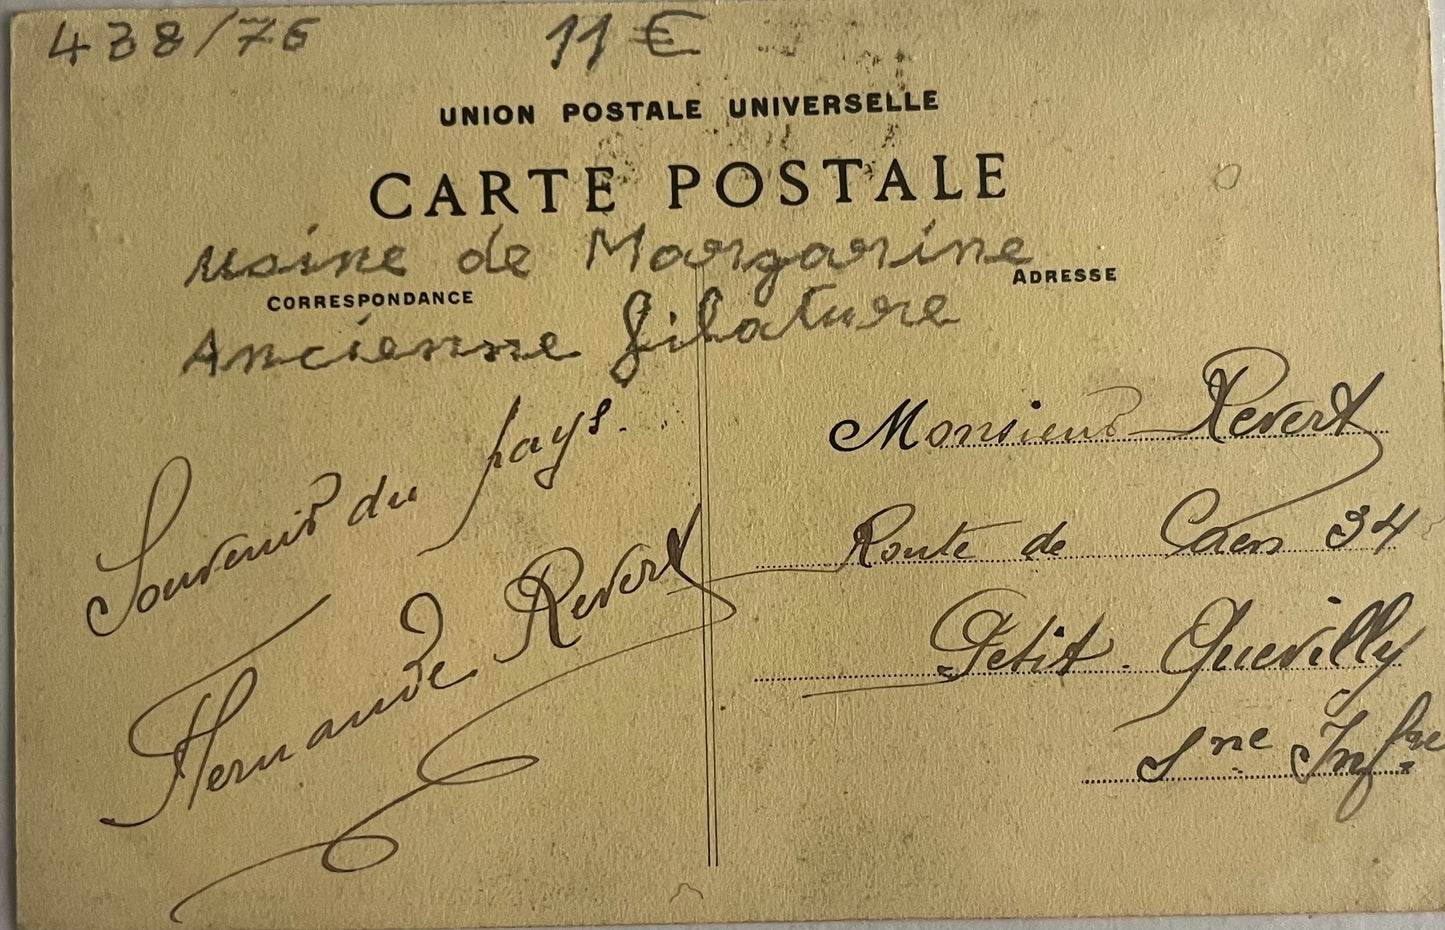 438/76 11€
UNION POSTALE UNIVERSELLE
CARTE POSTALE
usine de Margarine
CORRESPONDANCE
ADRESSE
Ancienne filature
Souvenir du pays.
Fernande Revert
Monsieur Revert
Route de Caen 34
Petit-Quevilly
Sne Infre